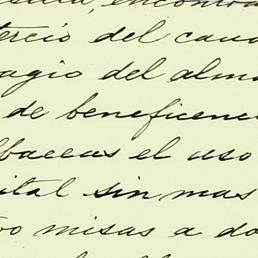 tercio del cau
agio del alm
de beneficen
lbaceas el uso
ital sin mas
ro misas a do